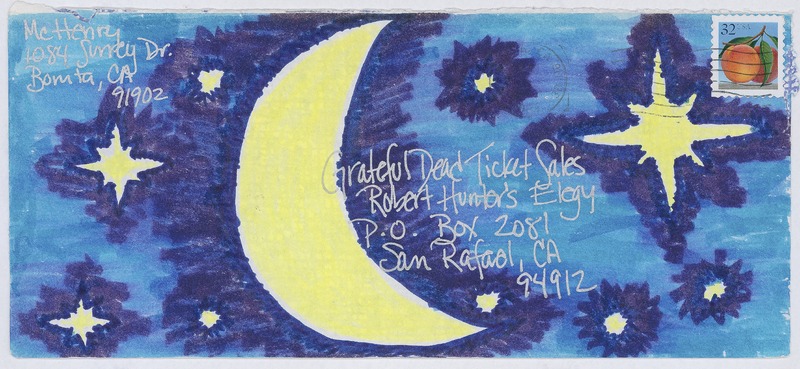 McHenry
1284 Surrey Dr.
Bonita, CA
91902
32 USA
Grateful Dead Ticket Sales
Robert Hunter's Elegy
P.O. Box 2081
San Rafael, CA
94912